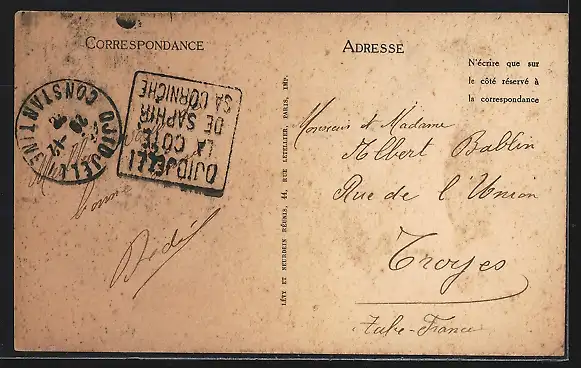 CORRESPONDANCE
ADRESSE
N'écrire que sur
le côté réservé à
la correspondance
DJIDJELLI
CONSTANTINE
DJIDJELLI
LA COTE
DE SAPHIR
SA CORNICHE
bonne
Dédé
LÉVY ET NEURDEIN RÉUNIS, 44, RUE LETELLIER, PARIS, IMP.
Monsieur et Madame
Albert Bablin
Rue de l'Union
Troyes
Aube-France